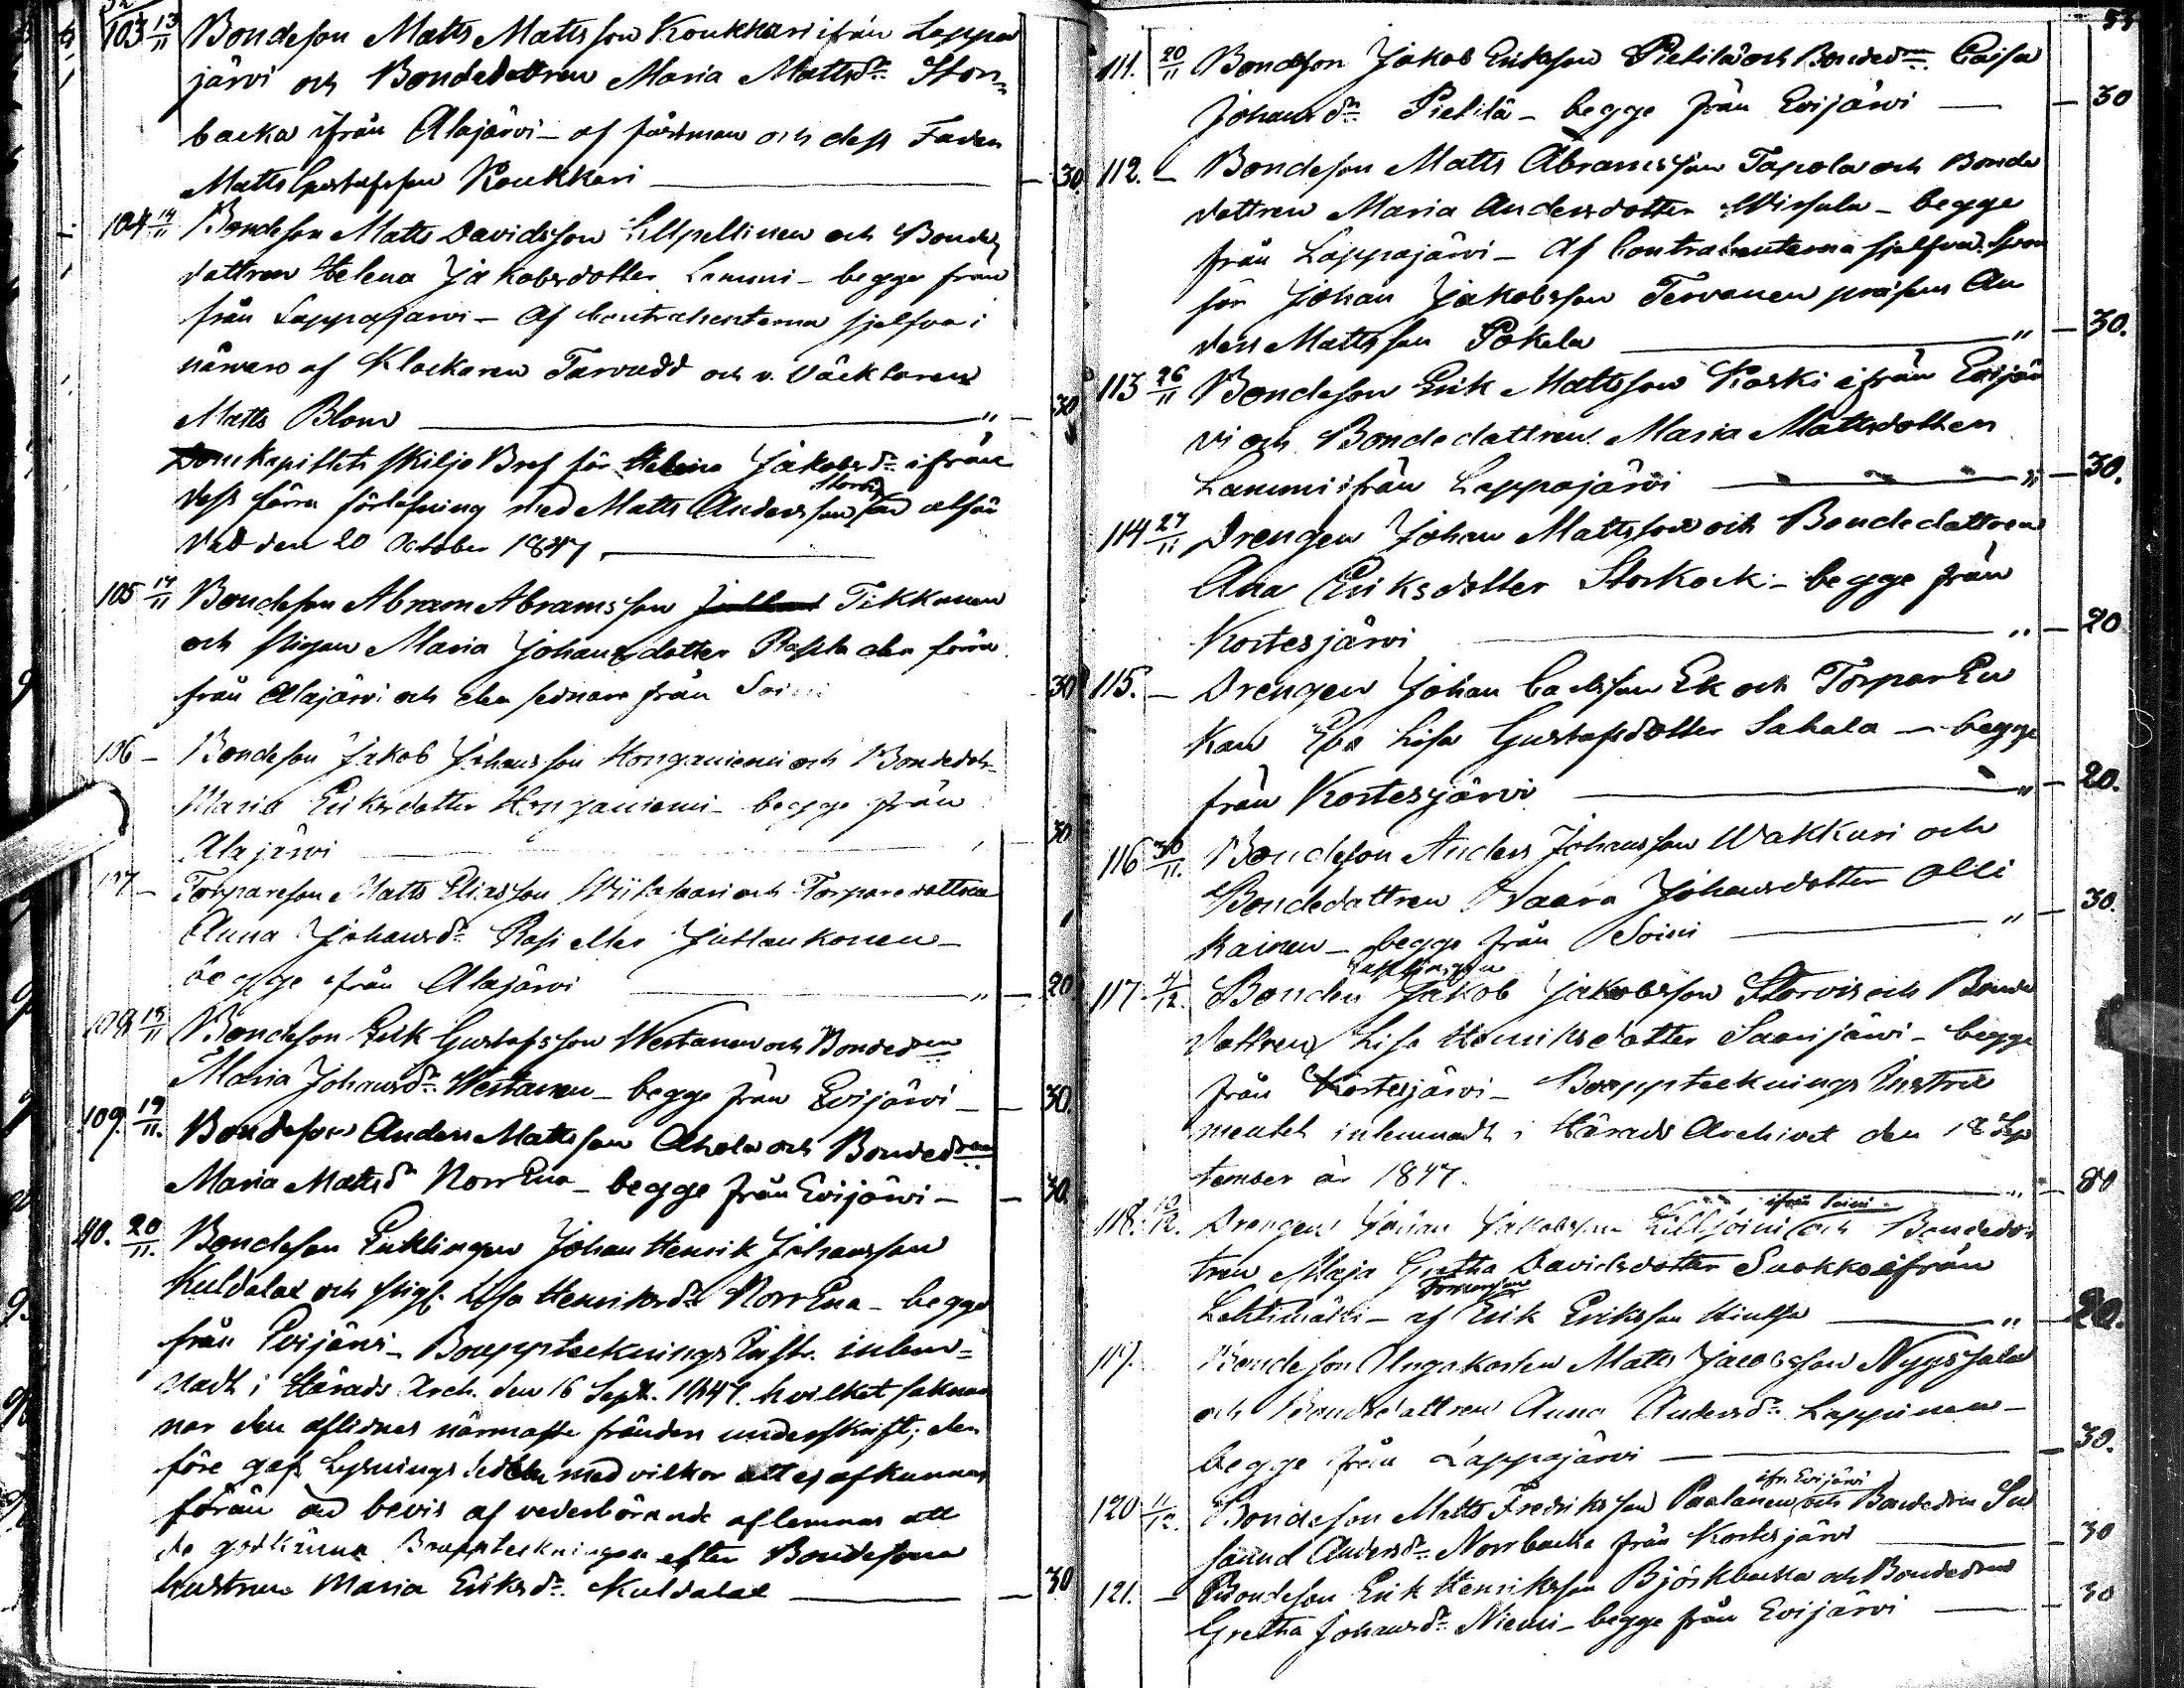 52
103 13/11 Bondeson Matts Mattsson Koukkari ifrån Lappa
järvi och Bondedottren Maria Mattsdr Stor=
backa ifrån Alajärvi – af fästman och dess Fader
Matts Gustafsson Koukkari — 30.
104 14/11 Bondeson Matts Davidsson och Bonde
dottren Helena Jakobsdotter Lammi – begge från
från Lappajärvi – Af Contrahenterna sjelfva i
närvaro af Klockaren Tarvudd och v. Väcktaren
Matts Blom — " — 30
Domkapitlets skiljo Bref för Helena Jakobsdr ifrån
dess förra förlofning med Matts Andersson
dad den 20 October 1847
105 14/11 Bondeson Abram Abramsson Tikkanen
och pigan Maria Johansdotter den förra
från Alajärvi och den sednare från Soini 30
106 – Bondeson Jakob Johansson Honganiemi och Bondedotr
Maria Eriksdotter Honganiemi – begge från
Alajärvi 30
107 – Torpareson Matts Eliasson och Torparedottren
Anna Johansdr Rasi eller Juttukonen –
begge från Alajärvi — " — 20
108 15/11 Bondeson Erik Gustafsson Westanen och Bondedren
Maria Johansdr Westanen – begge från Evijärvi — 30.
109. 19/11. Bondeson Anders Mattsson Ahola och Bondedren
Maria Mattsdr Norr Ena – begge från Evijärvi — 30.
110. 20/11. Bondeson Enklingen Johan Henrik Johansson
Kuldalax och pig. Lisa Henriksdr Norr Ena – begge
från Evijärvi – Bouppteknings Instr. inlem=
nadt i Härads Arch. den 16 Sept. 1847. hvilket sakna
nar den aflidnes närmaste fränders underskrift; der
före gafs Lysnings sedeln med vilkor att ej afkunnas
förän än bevis af vederbörande aflemnas att
de godkänna Bouppteckningen efter Bondesons
hustrun Maria Eriksdr Kuldalax — 30
53
111. 20/11 Bondeson Jakob Eriksson Pietilä och Bondedren Caisa
Johansdr Pietilä – begge från Evijärvi — 30
112. – Bondeson Matts Abramsson Tapola och Bonde
dottren Maria Andersdotter Wirsula – begge
från Lappajärvi – Af Contrahenterna sjelfva
för Johan Jakobsson Tervonen präsens An
ders Mattsson Pokela — " — 30.
113 26/11 Bondeson Erik Mattsson Koski ifrån Evijär
vi och Bondedottren Maria Mattsdotter
Lammi ifrån Lappajärvi — " — 30.
114 27/11 Drengen Johan Mattsson och Bondedottren
Ana Eriksdotter Storkock – begge från
Kortesjärvi — " — 20
115. – Drengen Johan Carlsson Ek och Torpar En
kan Eva Lisa Gustafsdotter Sahala — begge
från Kortesjärvi — " — 20.
116 30/11. Bondeson Anders Johansson Wakkuri och
Bondedottren Saara Johansdotter Olli
kainen – begge från Soini — " — 30.
117 4/12. Bonden Enklingen Jakob Jakobsson Storvis och Bonde
dottren Lisa Henriksdotter Saarijärvi – begge
från Kortesjärvi – Bouppteknings Instru
mentet inlemnadt i Härads Archivet den 18 Sep
tember år 1847. — " — 80
118. 10/12. Drengen Johan Jakobsson Lilljoini ifrån Soini och Bondedot
tren Maja Gretha Davidsdotter Suokko ifrån
Lehtimäki – af Erik Eriksson — " — 20.
119. Bondeson Ungakarlen Matts Jacobsson Nygs
och Bondedottren Anna Andersdr Lappinen –
begge från Lappajärvi — 30.
120 11/12. Bondeson Matts Fredriksson Paalanen ifr. Evijärvi och Bondedren Su
sanna Andersdr Norrbacka från Kortesjärvi — 30
121. – Bondeson Erik Henriksson Björkbacka och Bondedren
Gretha Johansdr Niemi – begge från Evijärvi — 30